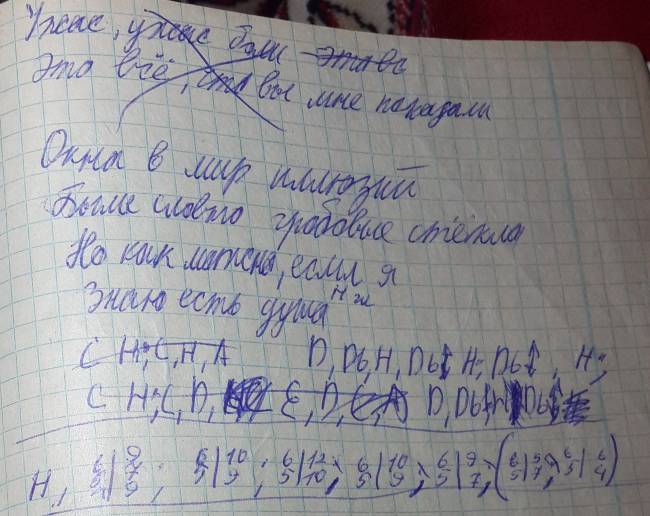 Ужас, ужас боли
Это всё, что вы мне показали
Окна в мир иллюзий
Были словно гробовые стёкла
Но как можно, если я
Знаю есть душа
C H, C, H, A D, Db, H, Db H, Db, H,
C H, C, D, E, D, C, A D, Db H Db
H, 6 5 | 10 9 ; 6 5 | 12 10 ; 6 5 | 10 9 ; 6 5 | 9 7 ; ( 6 5 | 9 7 ; 6 5 | 6 4 )